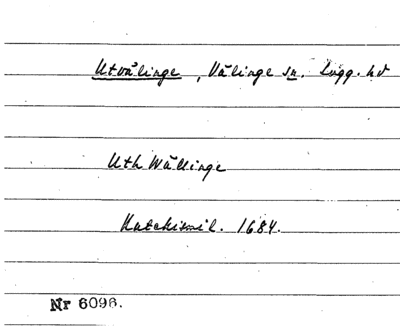 Utvälinge, Välinge sn. Lugg. hd
Uth Wällinge
Katekismil. 1684.
Nr 6096.